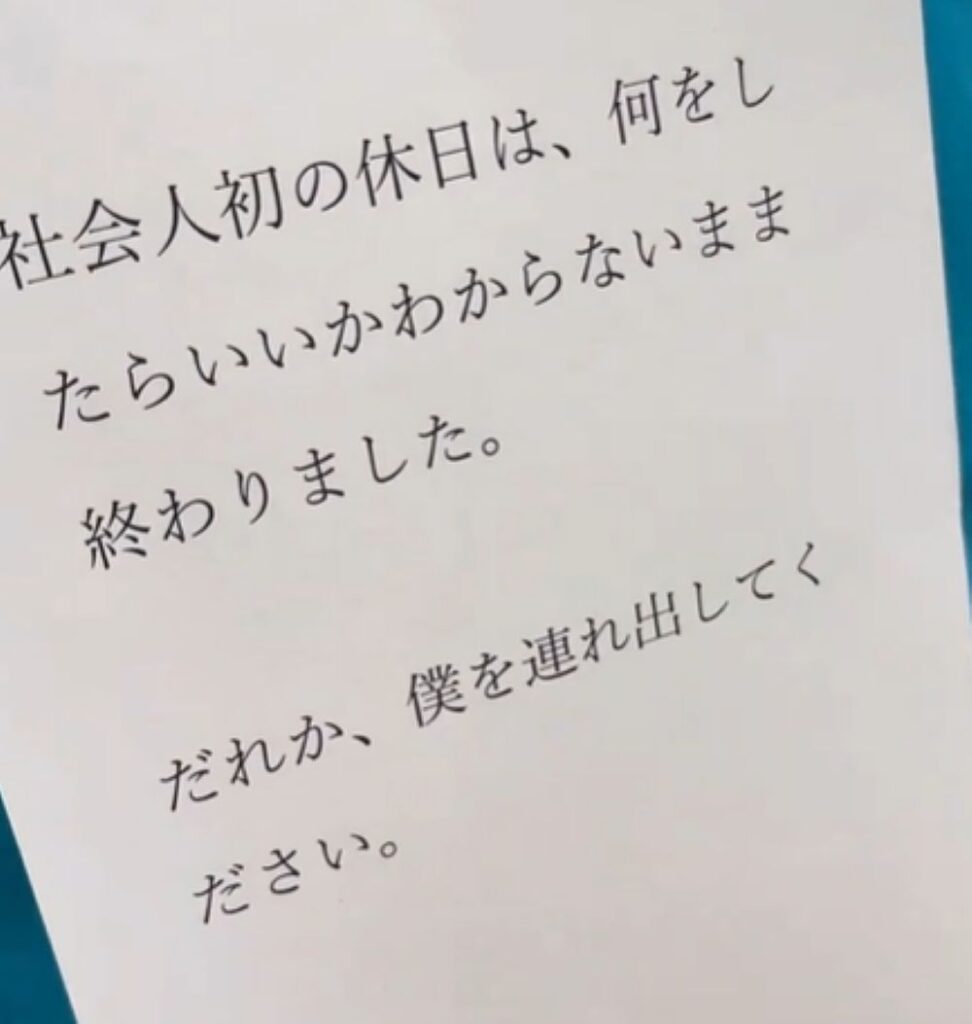 社会人初の休日は、何をし
たらいいかわからないまま
終わりました。
だれか、僕を連れ出してく
ださい。